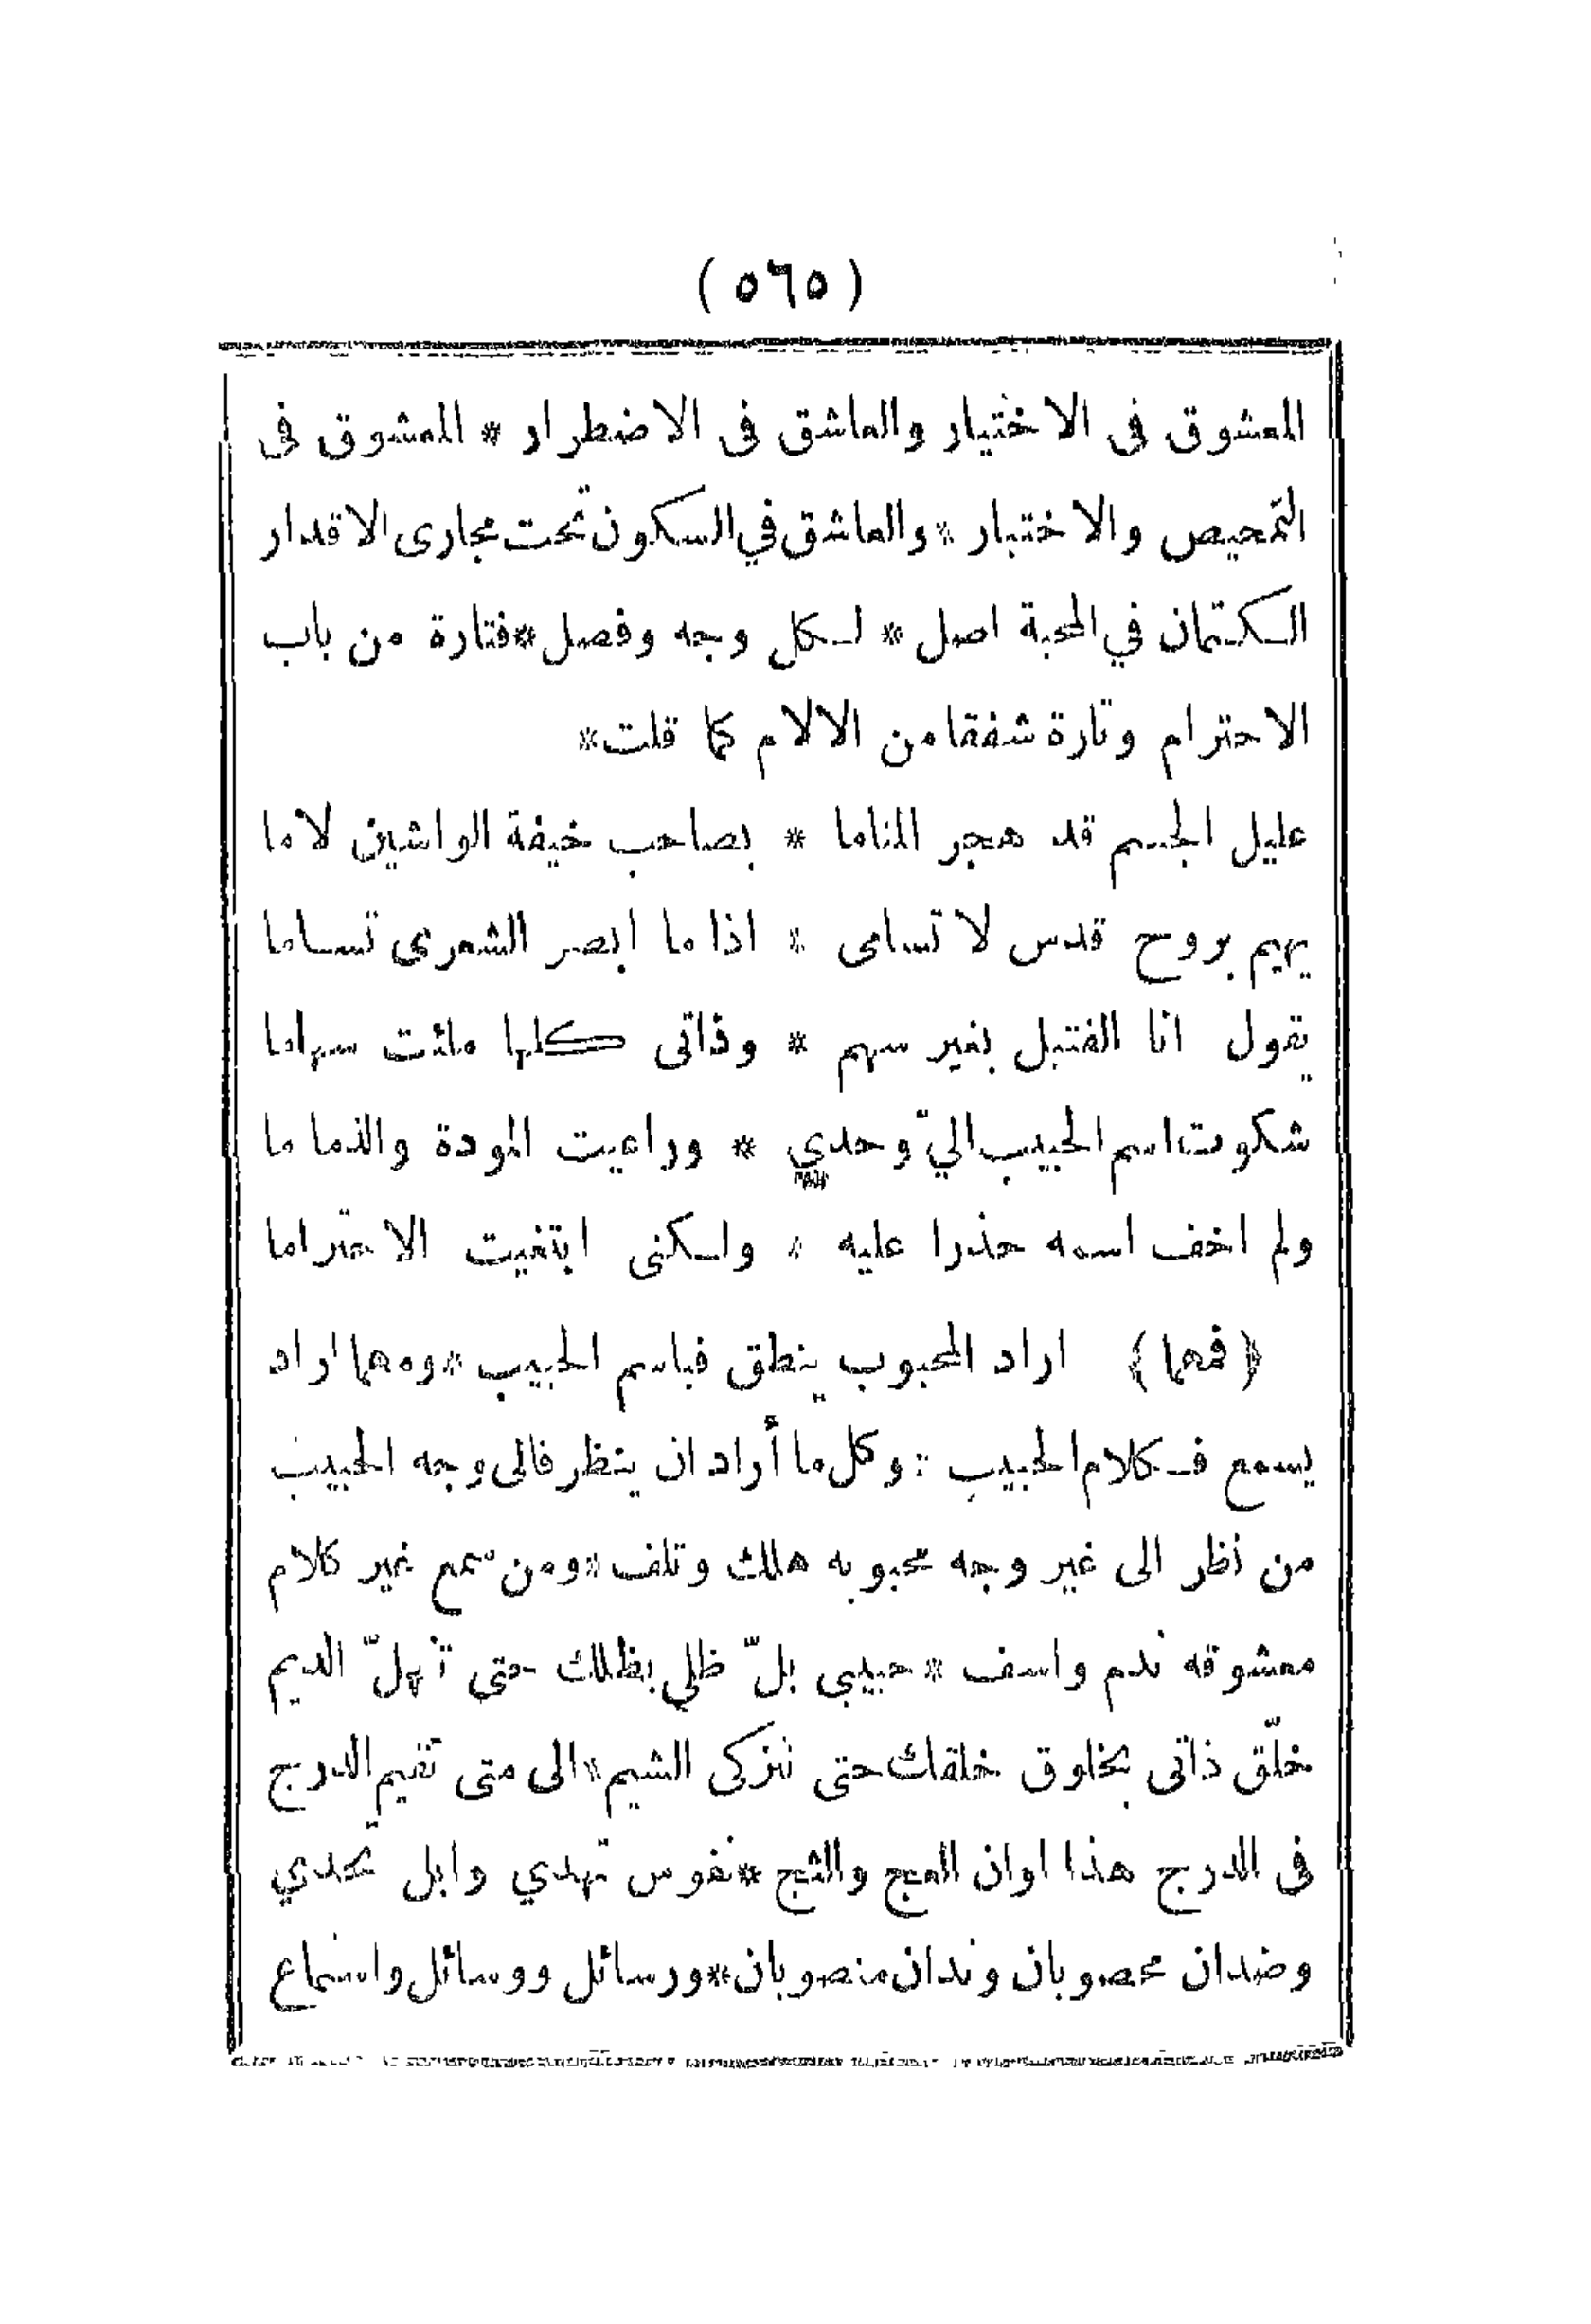 ( ٥٦٥ )
المعشوق فى الاختيار والعاشق فى الاضطرار * المعشوق فى
التمحيص والاختبار * والعاشق في السكون تحت مجارى الاقدار
الكتمان في المحبة اصل * لكل وجه وفصل * فتارة من باب
الاحترام وتارة شفقا من الالام كما قلت *
عليل الجسم قد هجر المناما * بصاحب خيفة الواشين لاما
يهيم بروح قدس لا تسامى * اذا ما ابصر الشعرى تساما
يقول انا القتيل بغير سهم * وذاتى كلها ملئت سهاما
شكوت اسم الحبيب اليّ وحدي * وراعيت المودة والذما ما
ولم اخف اسمه حذرا عليه * ولكنى ابتغيت الاحتراما
﴿ فمهما ﴾ اراد المحبوب ينطق فباسم الحبيب * ومهما اراد
يسمع فكلام الحبيب : وكل ما أراد ان ينظر فالى وجه الحبيب
من نظر الى غير وجه محبوبه هلك وتلف * ومن سمع غير كلام
معشوقه ندم واسف * حبيبى بلّ ظلي بظلك حتى تهلّ الديم
خلّق ذاتى بخلوق خلقك حتى تزكى الشيم * الى متى تقيم الدرج
فى الدرج هذا اوان العج والثج * نفوس تهدي وابل تحدي
وضدان محصوبان وندان منصوبان * ورسائل ووسائل واستماع